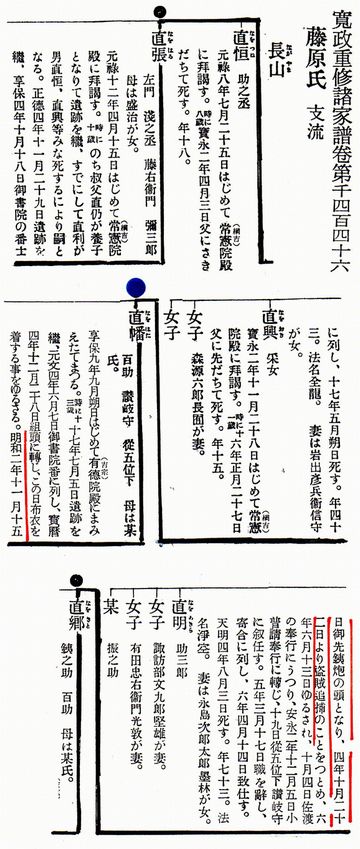 寛政重修諸家譜卷第千四百四十六
藤原氏 支流
長山
ながやま
直恒 助之丞
なをつね
元祿八年七月二十五日はじめて常憲院殿
(綱吉)
に拜謁す。時に八歲 寶永二年四月三日父にさき
だちて死す。年十八。
直張
なをはる
左門 淺之丞 藤右衞門 彌三郎
母は盛治が女。
元祿十二年四月十五日はじめて常憲院
(綱吉)
殿に拜謁す。時に十歲 のち叔父直仍が養子
となりて遺跡を繼、すでにして直利が
男直恒、直興等みな死するにより嗣と
なる。正德四年十一月二十九日遺跡を
繼、享保四年十月十八日御書院の番士
に列し、十七年五月朔日死す。年四十
三。法名全龍。 妻は岩出彥兵衞信守
が女。
直興 采女
なをおき
寶永二年十一月二十八日はじめて常憲
(綱吉)
院殿に拜謁す。時に十一歲 六年正月二十七日
父に先だちて死す。年十五。
女子
森源六郎長固が妻。
女子
直幡
なをはた
百助 讃岐守 從五位下 母は某
氏。
享保九年九月朔日はじめて有德院殿にまみ
(吉宗)
えたてまつる。時に十三歲 十七年七月五日遺跡を
繼、元文四年六月七日御書院番に列し、寶曆
四年十二月二十八日組頭に轉し、この日布衣を
着する事をゆるさる。明和二年十一月十五
日御先鐵炮の頭となり、四年十月二十
二日より盜賊追捕のことをつとめ、六
年六月十三日ゆるされ、十月四日佐渡
の奉行にうつり、安永二年十二月五日小
普請奉行に轉じ、十九日從五位下讃岐守
に叙任す。五年三月十七日職を辭し、
寄合に列し、六年四月十四日致仕す。
天明四年八月三日死す。年七十三。法
名淨空。 妻は永島次郎太郎墨林が女。
直明 助三郎
なをあきら
女子
諏訪部文九郎堅雄が妻。
女子
有田忠右衞門光敦が妻。
某
振之助
直鄕
なをさと
銕之助 百助 母は某氏。